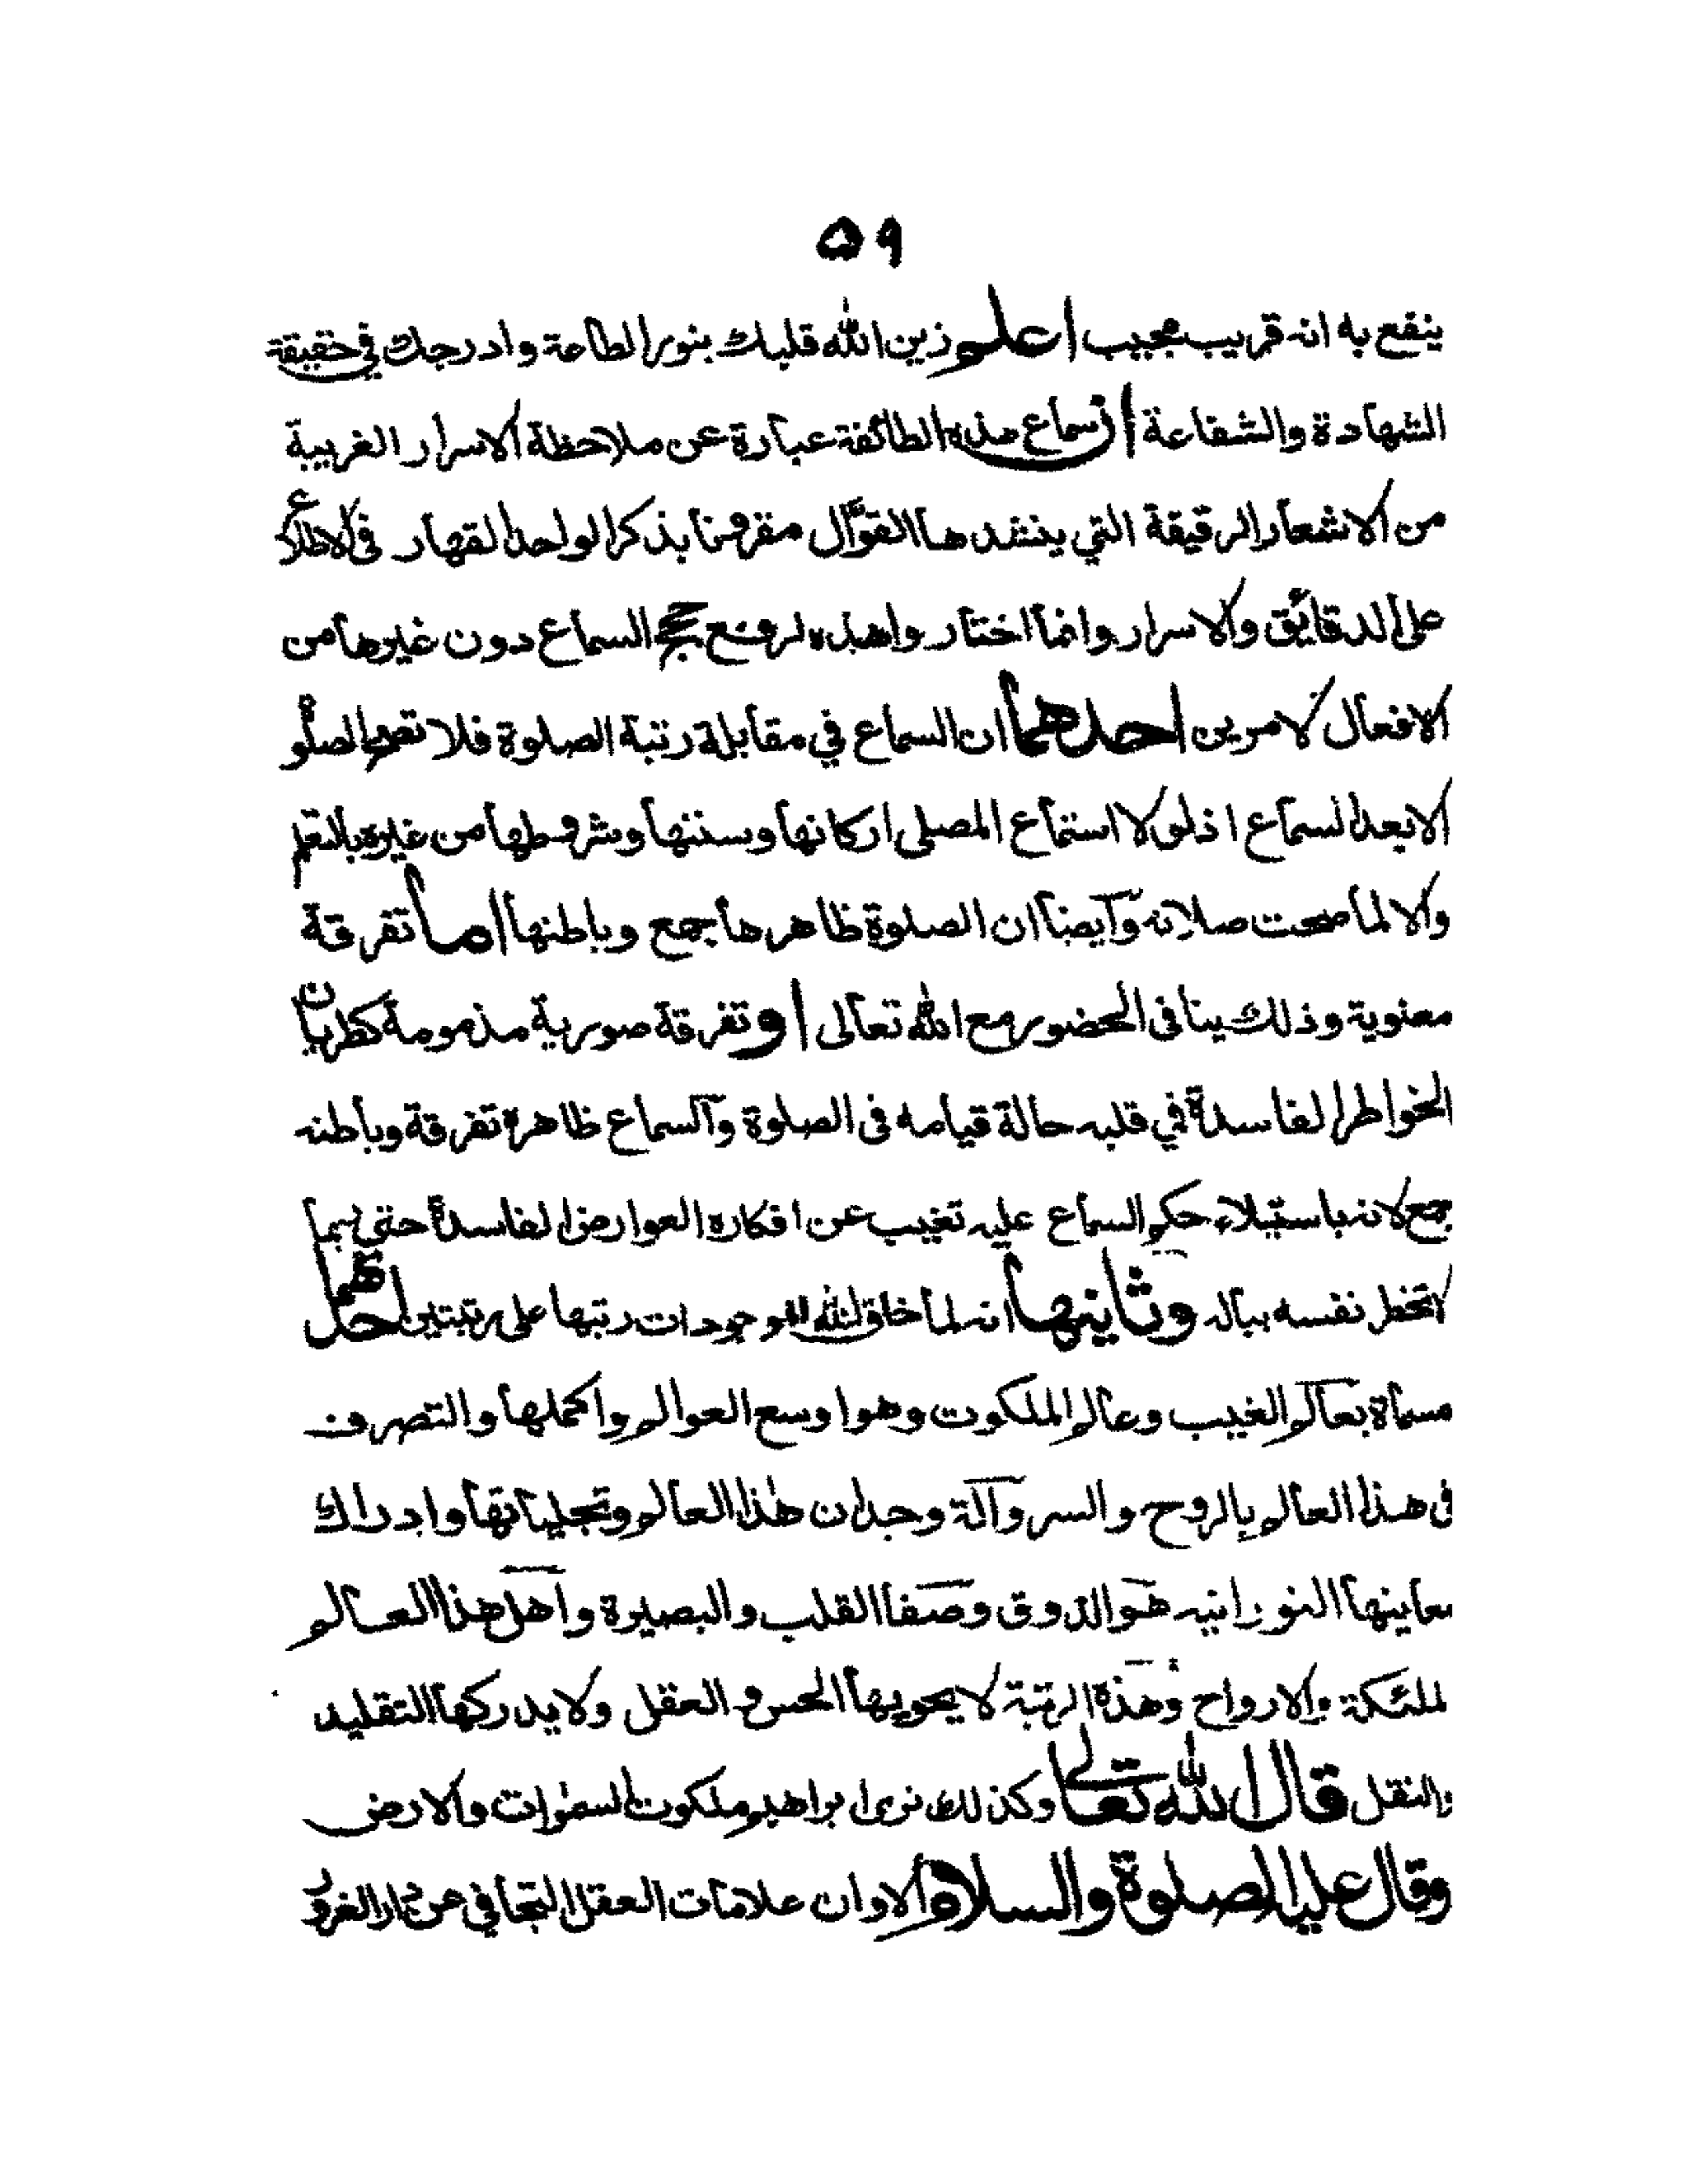 ٥٩
ينفع به انه قريب مجيب اعلم زين الله قلبك بنور الطاعة وادرجك في حقيقة
الشهادة والشفاعة ان سماع هذه الطائفة عبارة عن ملاحظة الاسرار الغريبة
من الاشعار الرقيقة التي ينشدها القوّال مقرونا بذكر الواحد القهار في الاطلاع
على الدقائق والاسرار وانما اختار واهذه لرفع حجج السماع دون غيرها من
الافعال لامرين احدهما ان السماع في مقابلة رتبة الصلوة فلا تصح الصلو
الابعد السماع اذ لولا استماع المصلى اركانها وسننها وشروطها من غيره بالتعلم
والا لما صحت صلاته وايضا ان الصلوة ظاهرها جمع وباطنها اما تفرقة
معنوية وذلك ينافى الحضور مع الله تعالى او تفرقة صورية مذمومة كطريان
الخواطر الفاسدة في قلبه حالة قيامه فى الصلوة والسماع ظاهره تفرقة وباطنه
جمع لانه باستيلاء حكم السماع عليه تغيب عن افكاره العوارض الفاسدة حتى ربما
لا تخطر نفسه بباله وثانيها انه لما خلق الله الموجودات رتبها على رتبتين احدهما
مسماة بعالم الغيب وعالم الملكوت وهو اوسع العوالم واكملها والتصرف
فى هذا العالم بالروح والسر وآلة وجدان هذا العالم وتجلياتها وادراك
معاينها النورانيه هو الذوق وصفا القلب والبصيرة واهل هذا العالم
الملئكة والارواح وهذه الرتبة لا يحويها الحس والعقل ولا يدركها التقليد
والنقل قال الله تعالى وكذلك نرى ابراهيم ملكوت السموات والارض
وقال عليه الصلوة والسلام الا وان علامات العقل التجافي عن دار الغرور